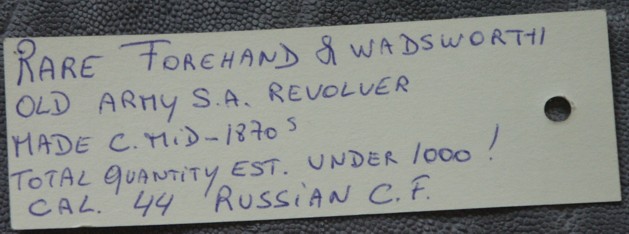 RARE FOREHAND & WADSWORTH
OLD ARMY S.A. REVOLVER
MADE C. MiD-1870s
TOTAL QUANTITY EST. UNDER 1000!
CAL. 44 RUSSiAN C.F.